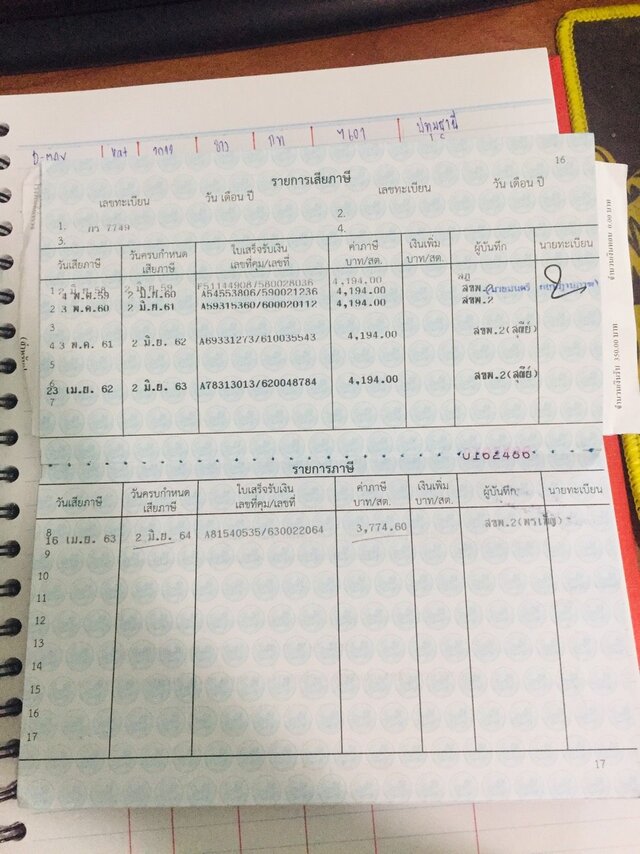 D-max | 4x4 | 2011 | ขาว | ปทุมธานี
16
รายการเสียภาษี
เลขทะเบียน วัน เดือน ปี เลขทะเบียน วัน เดือน ปี
1. กร 7749 2.
3. 4.
วันเสียภาษี วันครบกำหนดเสียภาษี ใบเสร็จรับเงิน เลขที่คุม/เลขที่ ค่าภาษี บาท/สต. เงินเพิ่ม บาท/สต. ผู้บันทึก นายทะเบียน
1 2 มิ.ย. 58 2 มิ.ย. 59 F51144908/580028036 4,194.00
4 พ.ค. 59 2 มิ.ย. 60 A54553806/590021236 4,194.00 สขพ.2
2 3 พ.ค. 60 2 มิ.ย. 61 A59315360/600020112 4,194.00 สขพ.2
3
4 3 พ.ค. 61 2 มิ.ย. 62 A69331273/610035543 4,194.00 สขพ.2(สุณีย์)
5
6
23 เม.ย. 62 2 มิ.ย. 63 A78313013/620048784 4,194.00 สขพ.2(สุณีย์)
7
0162466
รายการภาษี
วันเสียภาษี วันครบกำหนดเสียภาษี ใบเสร็จรับเงิน เลขที่คุม/เลขที่ ค่าภาษี บาท/สต. เงินเพิ่ม บาท/สต. ผู้บันทึก นายทะเบียน
8
16 เม.ย. 63 2 มิ.ย. 64 A81540535/630022064 3,774.60 สขพ.2(พรเพ็ญ)
9
10
11
12
13
14
15
16
17
17
จำนวนเงินทอน 0.00 บาท
จำนวนเงินรับ 350.00 บาท